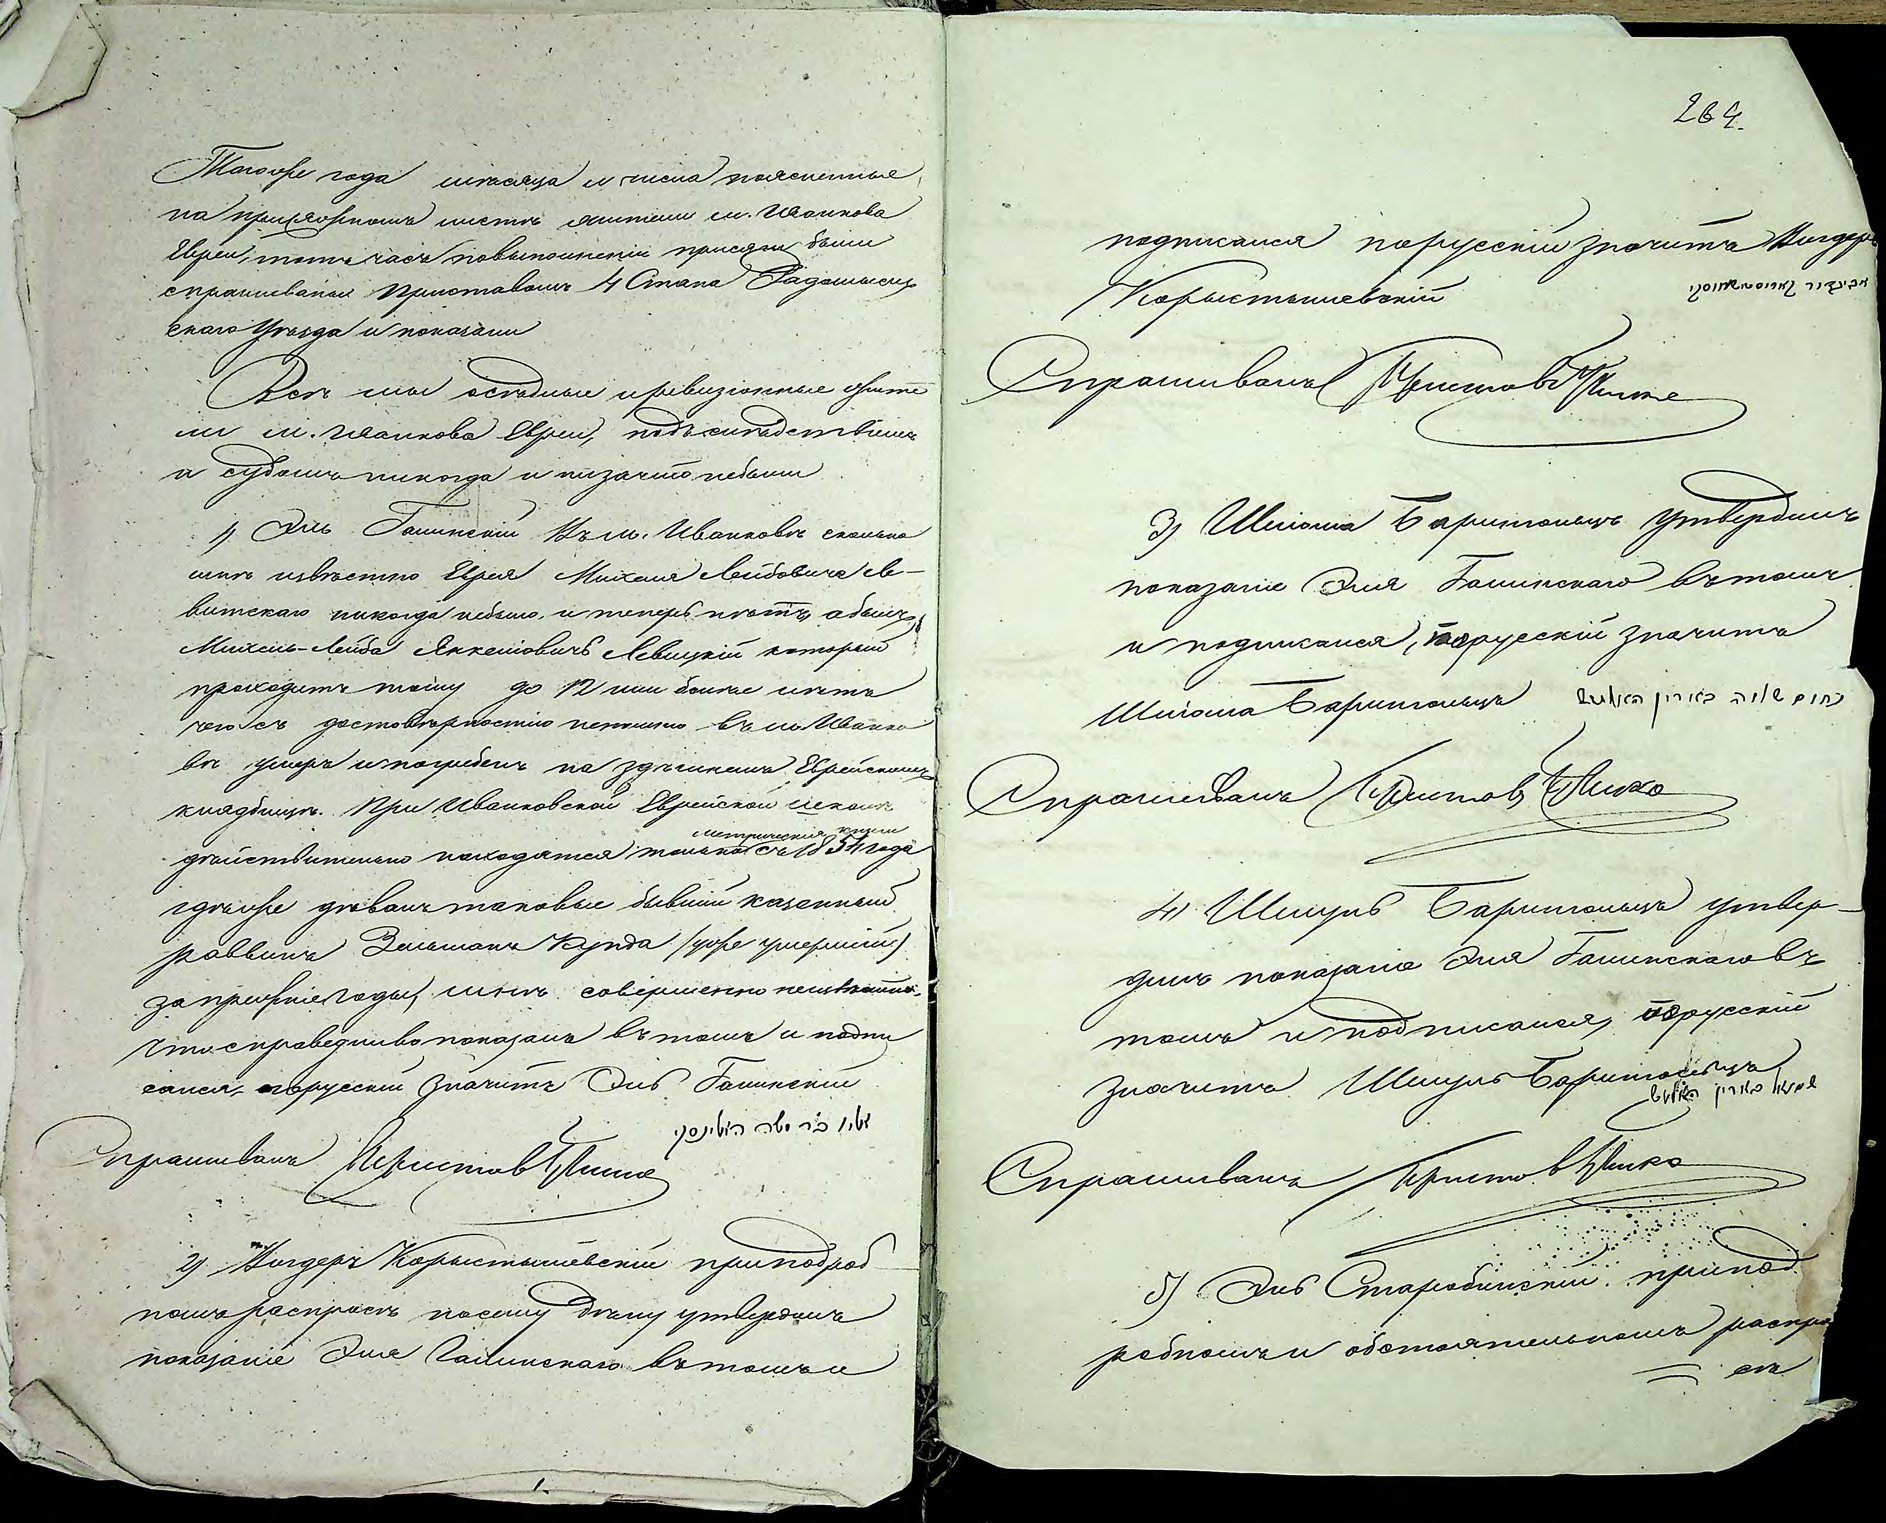 Тогоже года месяца и числа поясненные
на присяжномъ листѣ жители м. Иванкова
Евреи, тотъ часъ повыполненіи присяги были
спрашиваны Приставомъ 4 Стана Радомысль
скаго Уѣзда и показали
Всѣ мы осѣдлые и ревизіонные жите
ли м. Иванкова Евреи, подъ слѣдствіемъ
и судомъ никогда и низачто небыли
1) Эль Галинскій Въ м. Иванковѣ сколько
мнѣ извѣстно Еврея Михеля Лейбовича Ле-
витскаго никогда небыло, и теперь нѣтъ, а былъ
Михель-Лейба Янкелiовичъ Левицкій который
проходитъ тому до 12 или более летъ
чего съ достовѣрностію непомню въ м. Иванко
вѣ умеръ и погребенъ на здѣшнемъ Еврейскомъ
кладбищѣ. При Иванковской Еврейской школѣ
метрическія книги
дѣйствительно находятся только съ 1854 года
гдѣже дѣвалъ таковые бывшій казенный
раввинъ Зельманъ Кунда (уже умершій)
за прежніе годы, мнѣ совершенно неизвѣстно,
что справедливо показалъ въ томъ и подпи
сался, порусскій значитъ Эль Галинскій
אליו ב״ר משה האלינסקי
Спрашивалъ Приставъ
2) Вигдеръ Коростышевскій приподроб
номъ распросѣ посему делу утвердилъ
показаніе Эля Галинскаго въ томъ и
264.
подписался порусскій значитъ Вигдеръ
Коростышевскій
אביגדור קאריסטישאווסקי
Спрашивалъ Приставъ
3) Шліома Барштольцъ утвердилъ
показаніе Эля Галинскаго въ томъ
и подписался, порусскій значитъ
Шліома Барштольцъ נחום שלמה בארין האלטש
Спрашивалъ Приставъ
4) Шмуль Барштольцъ утвер-
дилъ показаніе Эля Галинскаго въ
томъ и подписался, порусскій
значитъ Шмуль Барштольцъ
שמואל בארין האלטש
Спрашивалъ Приставъ
5) Эль Старобинскій припод
робномъ и обстоятельномъ распро
сѣ